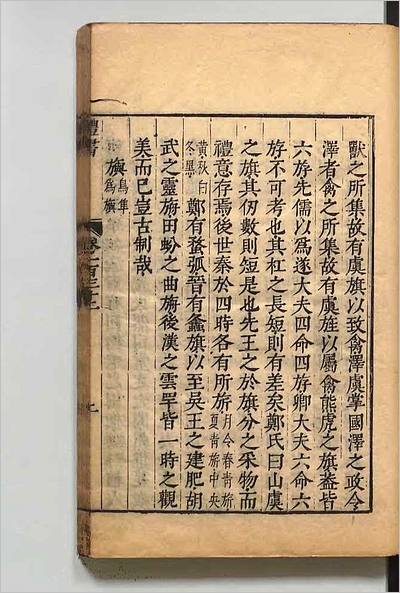 獸之所集故有虞旗以致禽澤虞掌國澤之政令
澤者禽之所集故有虞旌以屬禽熊虎之旗蓋皆
六斿先儒以為遂大夫四命四斿卿大夫六命六
斿不可考也其杠之長短則有差矣鄭氏曰山虞
之旗其仞數則短是也先王之於旗分之采物而
禮意存焉後世秦於四時各有所旂月令春青旂夏青旂中央
黃秋白冬黑鄭有蝥弧晉有蠭旗以至吳王之建肥胡
武之靈旂田蚡之曲旃後漢之雲罕皆一時之觀
美而已豈古制哉
旟鳥隼為旟
禮書